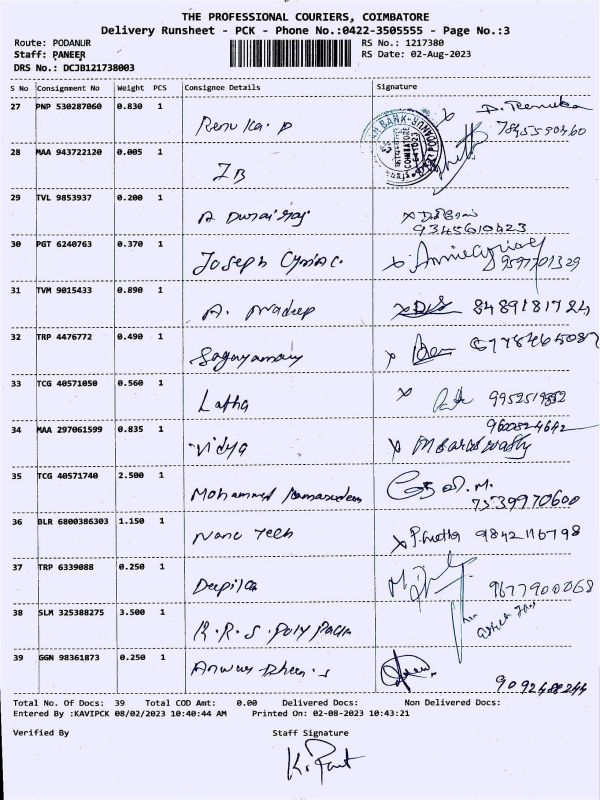 THE PROFESSIONAL COURIERS, COIMBATORE
Delivery Runsheet - PCK - Phone No.:0422-3505555 - Page No.:3
Route: PODANUR
Staff: PANEER
DRS No.: DCJB121738003
RS No.: 1217380
RS Date: 02-Aug-2023
S No Consignment No Weight PCS Consignee Details Signature
27 PNP 530287060 0.830 1 Renuka. P D. Renuka
7845590460
28 MAA 943722120 0.005 1 IB
29 TVL 9853937 0.200 1 A Durairaj
9345610423
30 PGT 6240763 0.370 1 Joseph Cyriac. Anniecyriac
9597701329
31 TVM 9015433 0.890 1 A. Pradeep 8489181724
32 TRP 4476772 0.490 1 Sagayamary
33 TCG 40571050 0.560 1 Latha 9952519852
9600824642
34 MAA 297061599 0.835 1 Vidya
35 TCG 40571740 2.500 1 Mohammed M.
7539970600
36 BLR 6800386303 1.150 1 Nano Tech 9842116798
37 TRP 6339088 0.250 1 Deepika 9677900068
38 SLM 325388275 3.500 1 K.R.S. Poly Pack
39 GGN 98361873 0.250 1
9092488244
Total No. Of Docs: 39 Total COD Amt: 0.00 Delivered Docs: Non Delivered Docs:
Entered By :KAVIPCK 08/02/2023 10:40:44 AM Printed On: 02-08-2023 10:43:21
Verified By Staff Signature